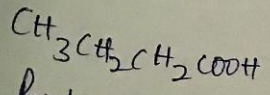 CH₃CH₂CH₂COOH